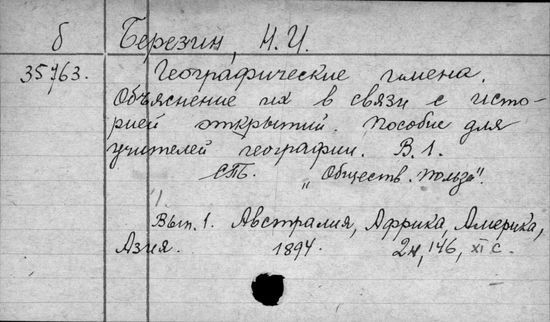 б Березин, Н. И.
35763. Географические имена.
Объяснение их в связи с исто-
рией открытий. Пособие для
учителей географии. В. 1.
СПБ. "Обществ. польза".
1.
Вып. 1. Австралия, Африка, Америка,
Азия. 1894. 2н, 146, XI с.